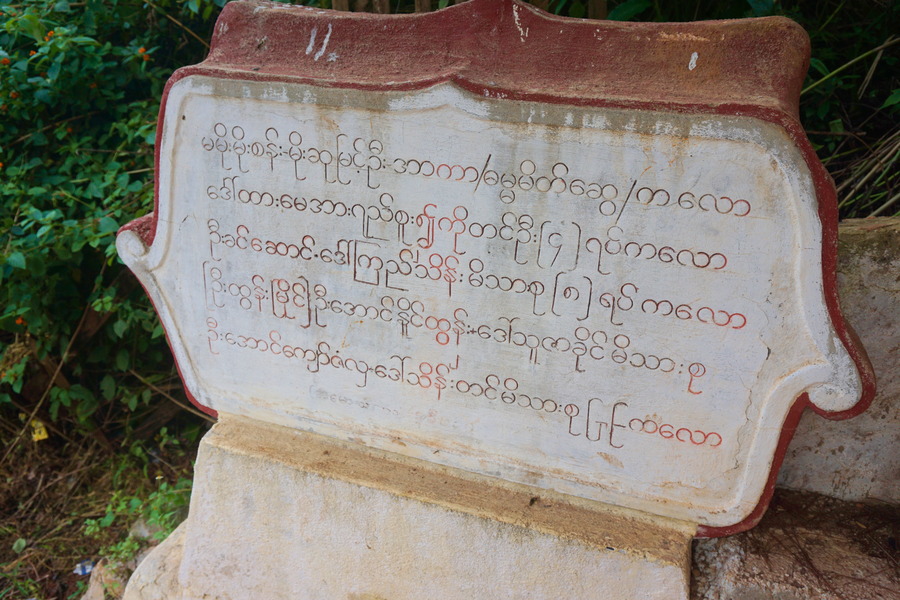 မမိုးမိုးစန်း-မိုးဆုမြင့်ဦး-အာကာ/ဓမ္မမိတ်ဆွေ/ကလော
ဒေါ်ထားမေအား၇ည်စူး၍ကိုတင်ဦး(၄)၇ပ်ကလော
ဦးခင်ဆောင်းဒေါ်ကြည်သိန်းမိသားစု(၈)၇ပ်ကလော
(ဦးထွန်းမြိုင်)ဦးအောင်နိူင်ထွန်း+ဒေါ်သူဇာခိုင်မိသားစု
ဦးအောင်ကျော်ဇံလှ-ဒေါ်သိန်းတင်မိသားစု(၂)ကလော